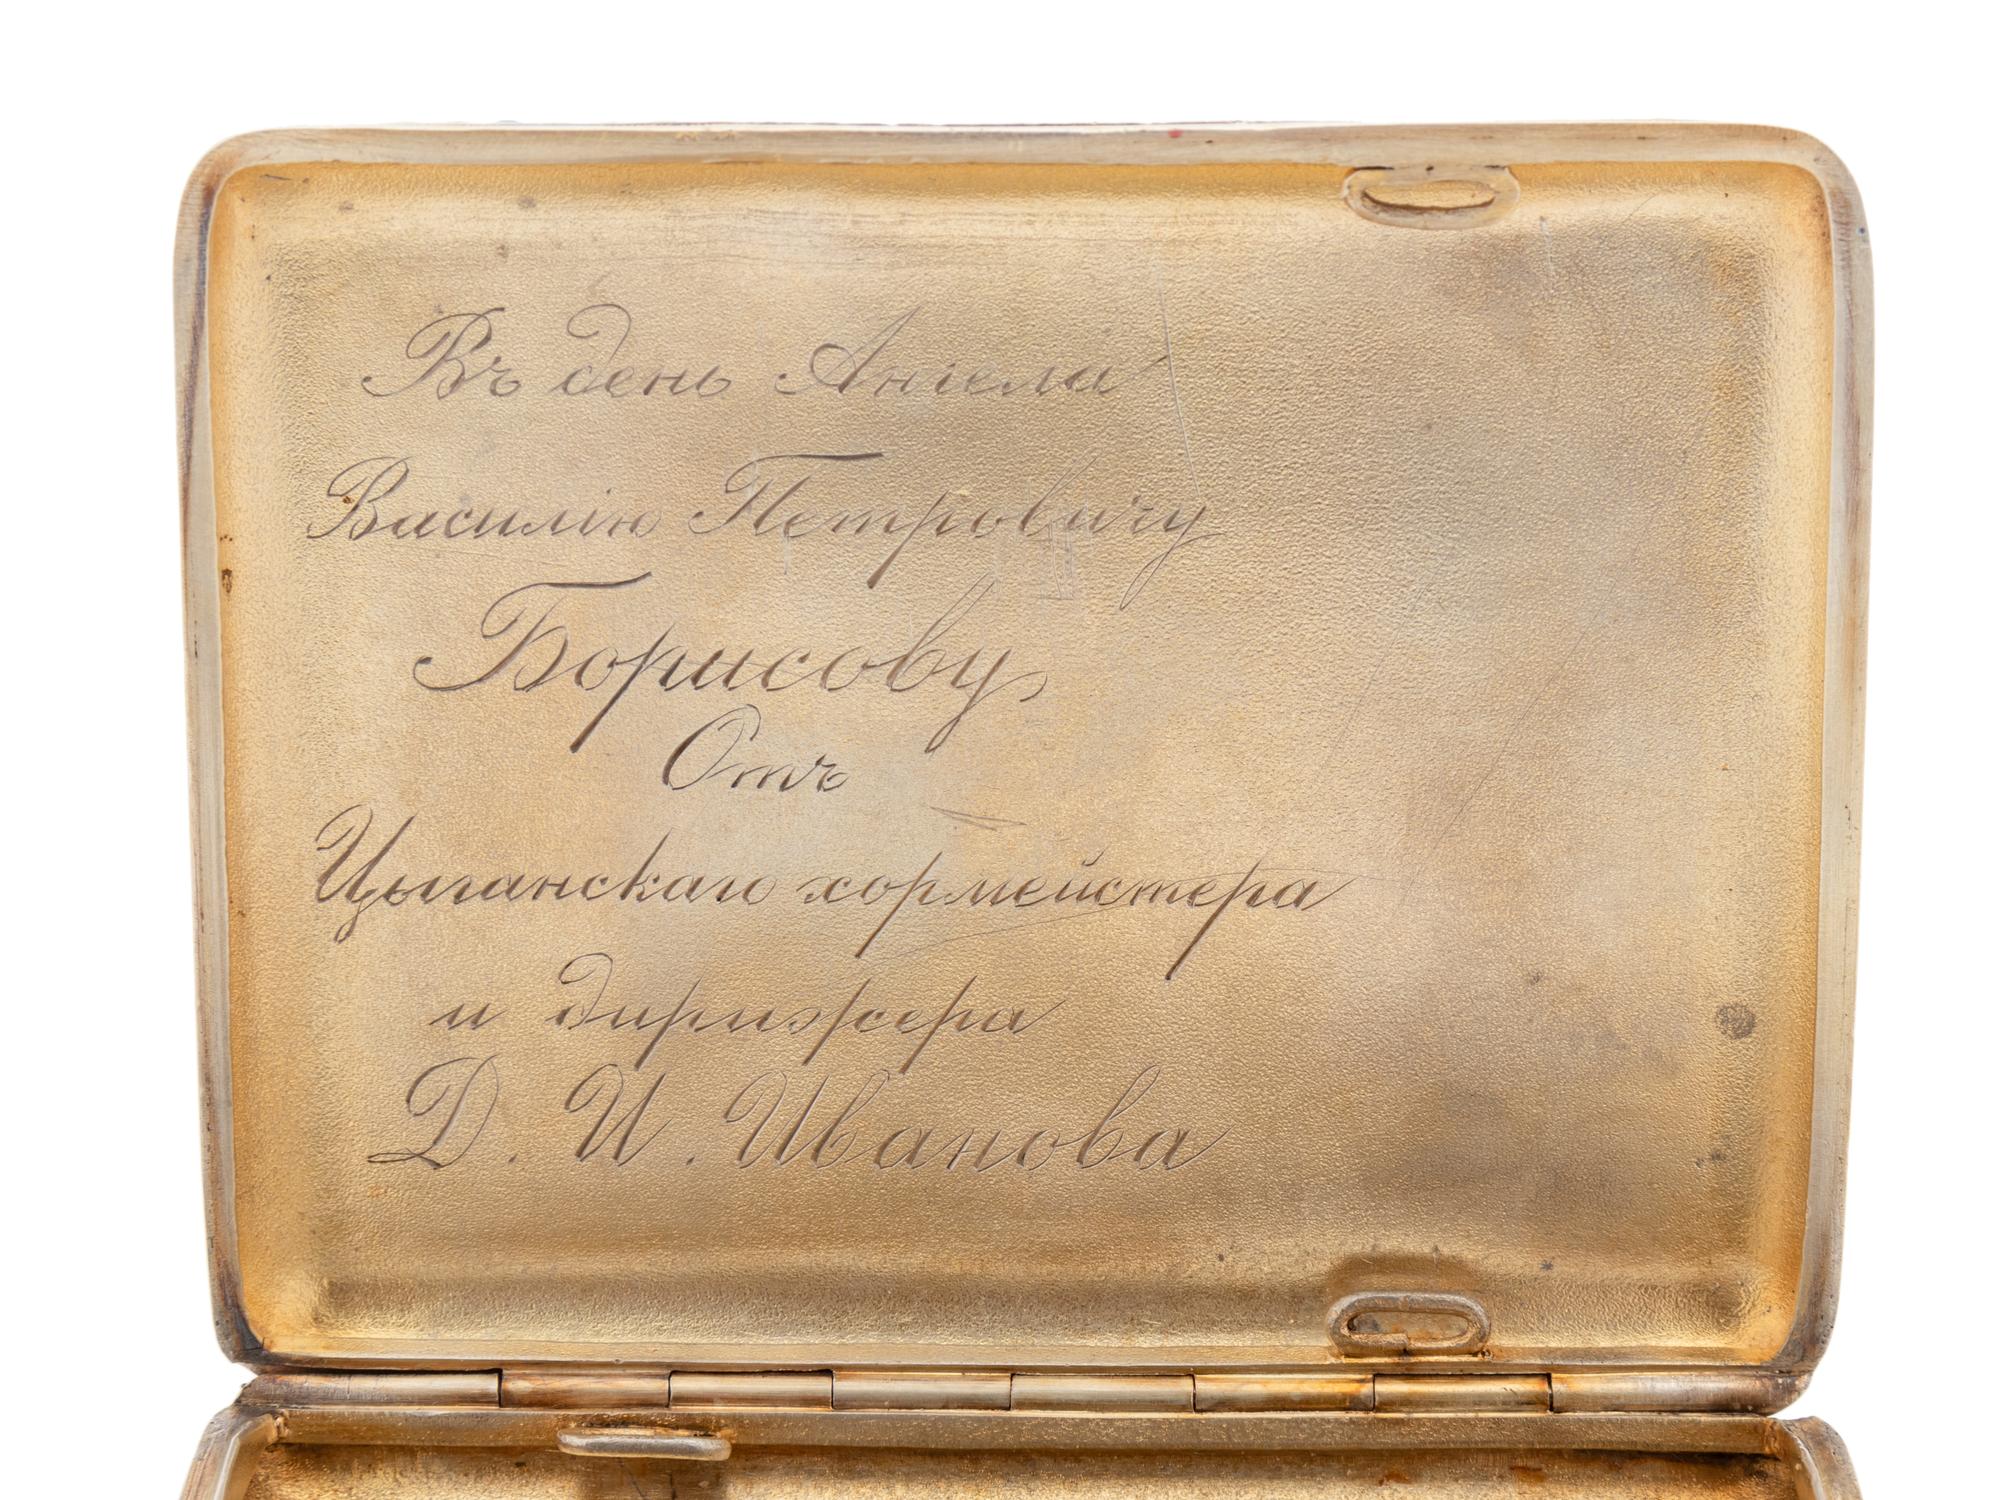 Въ день Ангела
Василію Петровичу
Борисову
Отъ
Цыганскаго хормейстера
и дирижера
Д. И. Иванова